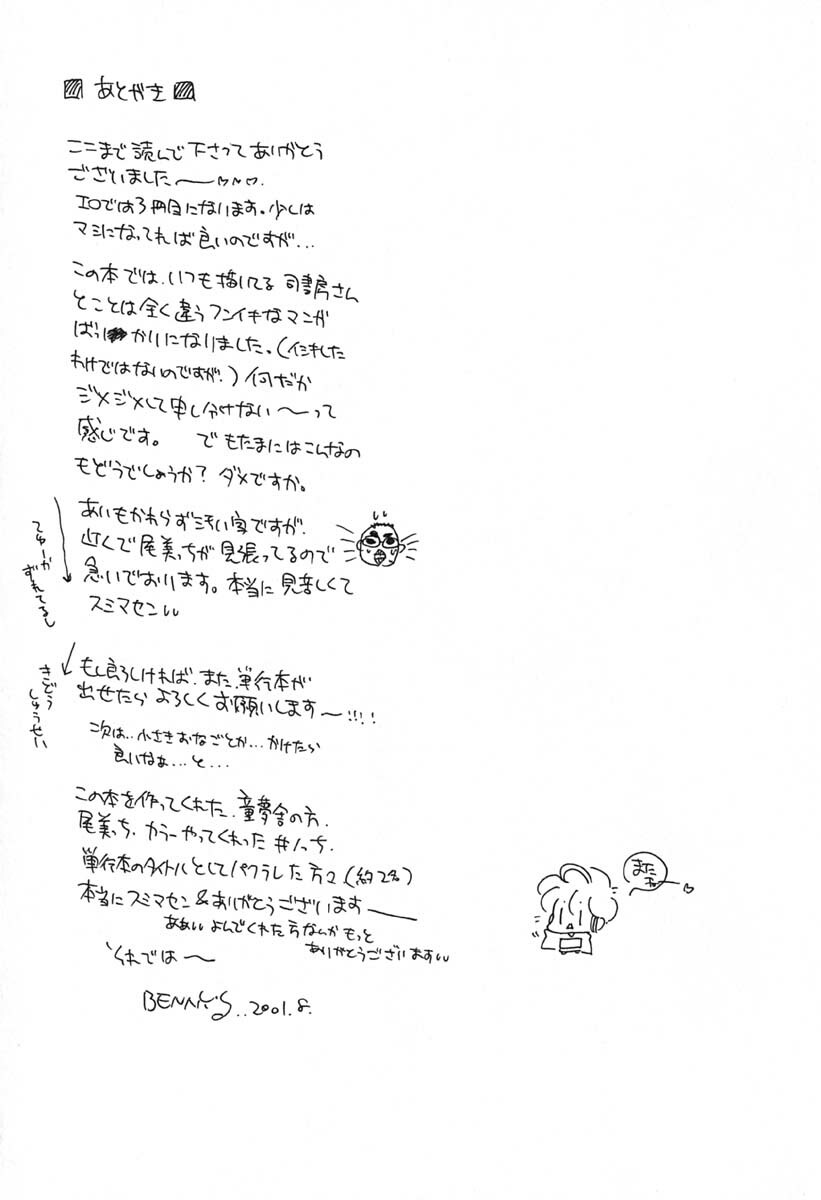 あとがき
ここまで読んで下さってありがとう
ございました〜♡〜♡.
エロでは3冊目になります。少しは
マシになってれば良いのですが...
この本では、いつも描いてる 司書房さん
とことは全く違うフンイキなマンガ
ばっかりになりました。(イシキした
わけではないのですが。) 何だか
ジメジメして申し分けない〜って
感じです。 でもたまにはこんなの
もどうでしょうか? ダメですか。
あいもかわらず汚い字ですが、
近くで尾美っちが見張ってるので
急いでおります。本当に見苦しくて
スミマセン
てゆーか
ずれてるし
もし良ろしければ、また、単行本が
出せたら よろしく お願いします〜!!!!
きどう
しゅうせい
次は..小さきおなごとか...かけたら
良いなぁ...と...
この本を作ってくれた、童夢舎の方、
尾美っち、カラーやってくれった
単行本のタイトルとしてパクラレした方々(約2名)
本当にスミマセン&ありがとうございます〜
ああいよんでくれた方なんかもっと
ありがとうございます
それでは〜
BENNY'S ..2001.8.
また
ねー♡